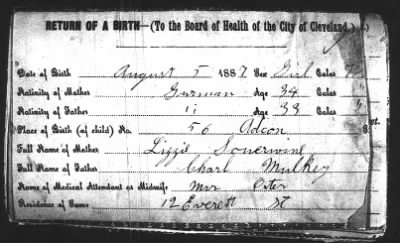 RETURN OF A BIRTH—(To the Board of Health of the City of Cleveland.)
Date of Birth August 5 1887 Sex Girl Color W
Nativity of Mother German Age 34 Color
Nativity of Father " Age 33 Color "
Place of Birth (of child) No. 56 Adcon St.
Full Name of Mother Lizzie Sourwine
Full Name of Father Charl Mulkey
Name of Medical Attendant or Midwife Mrs
Residence of Same 12 Everett St